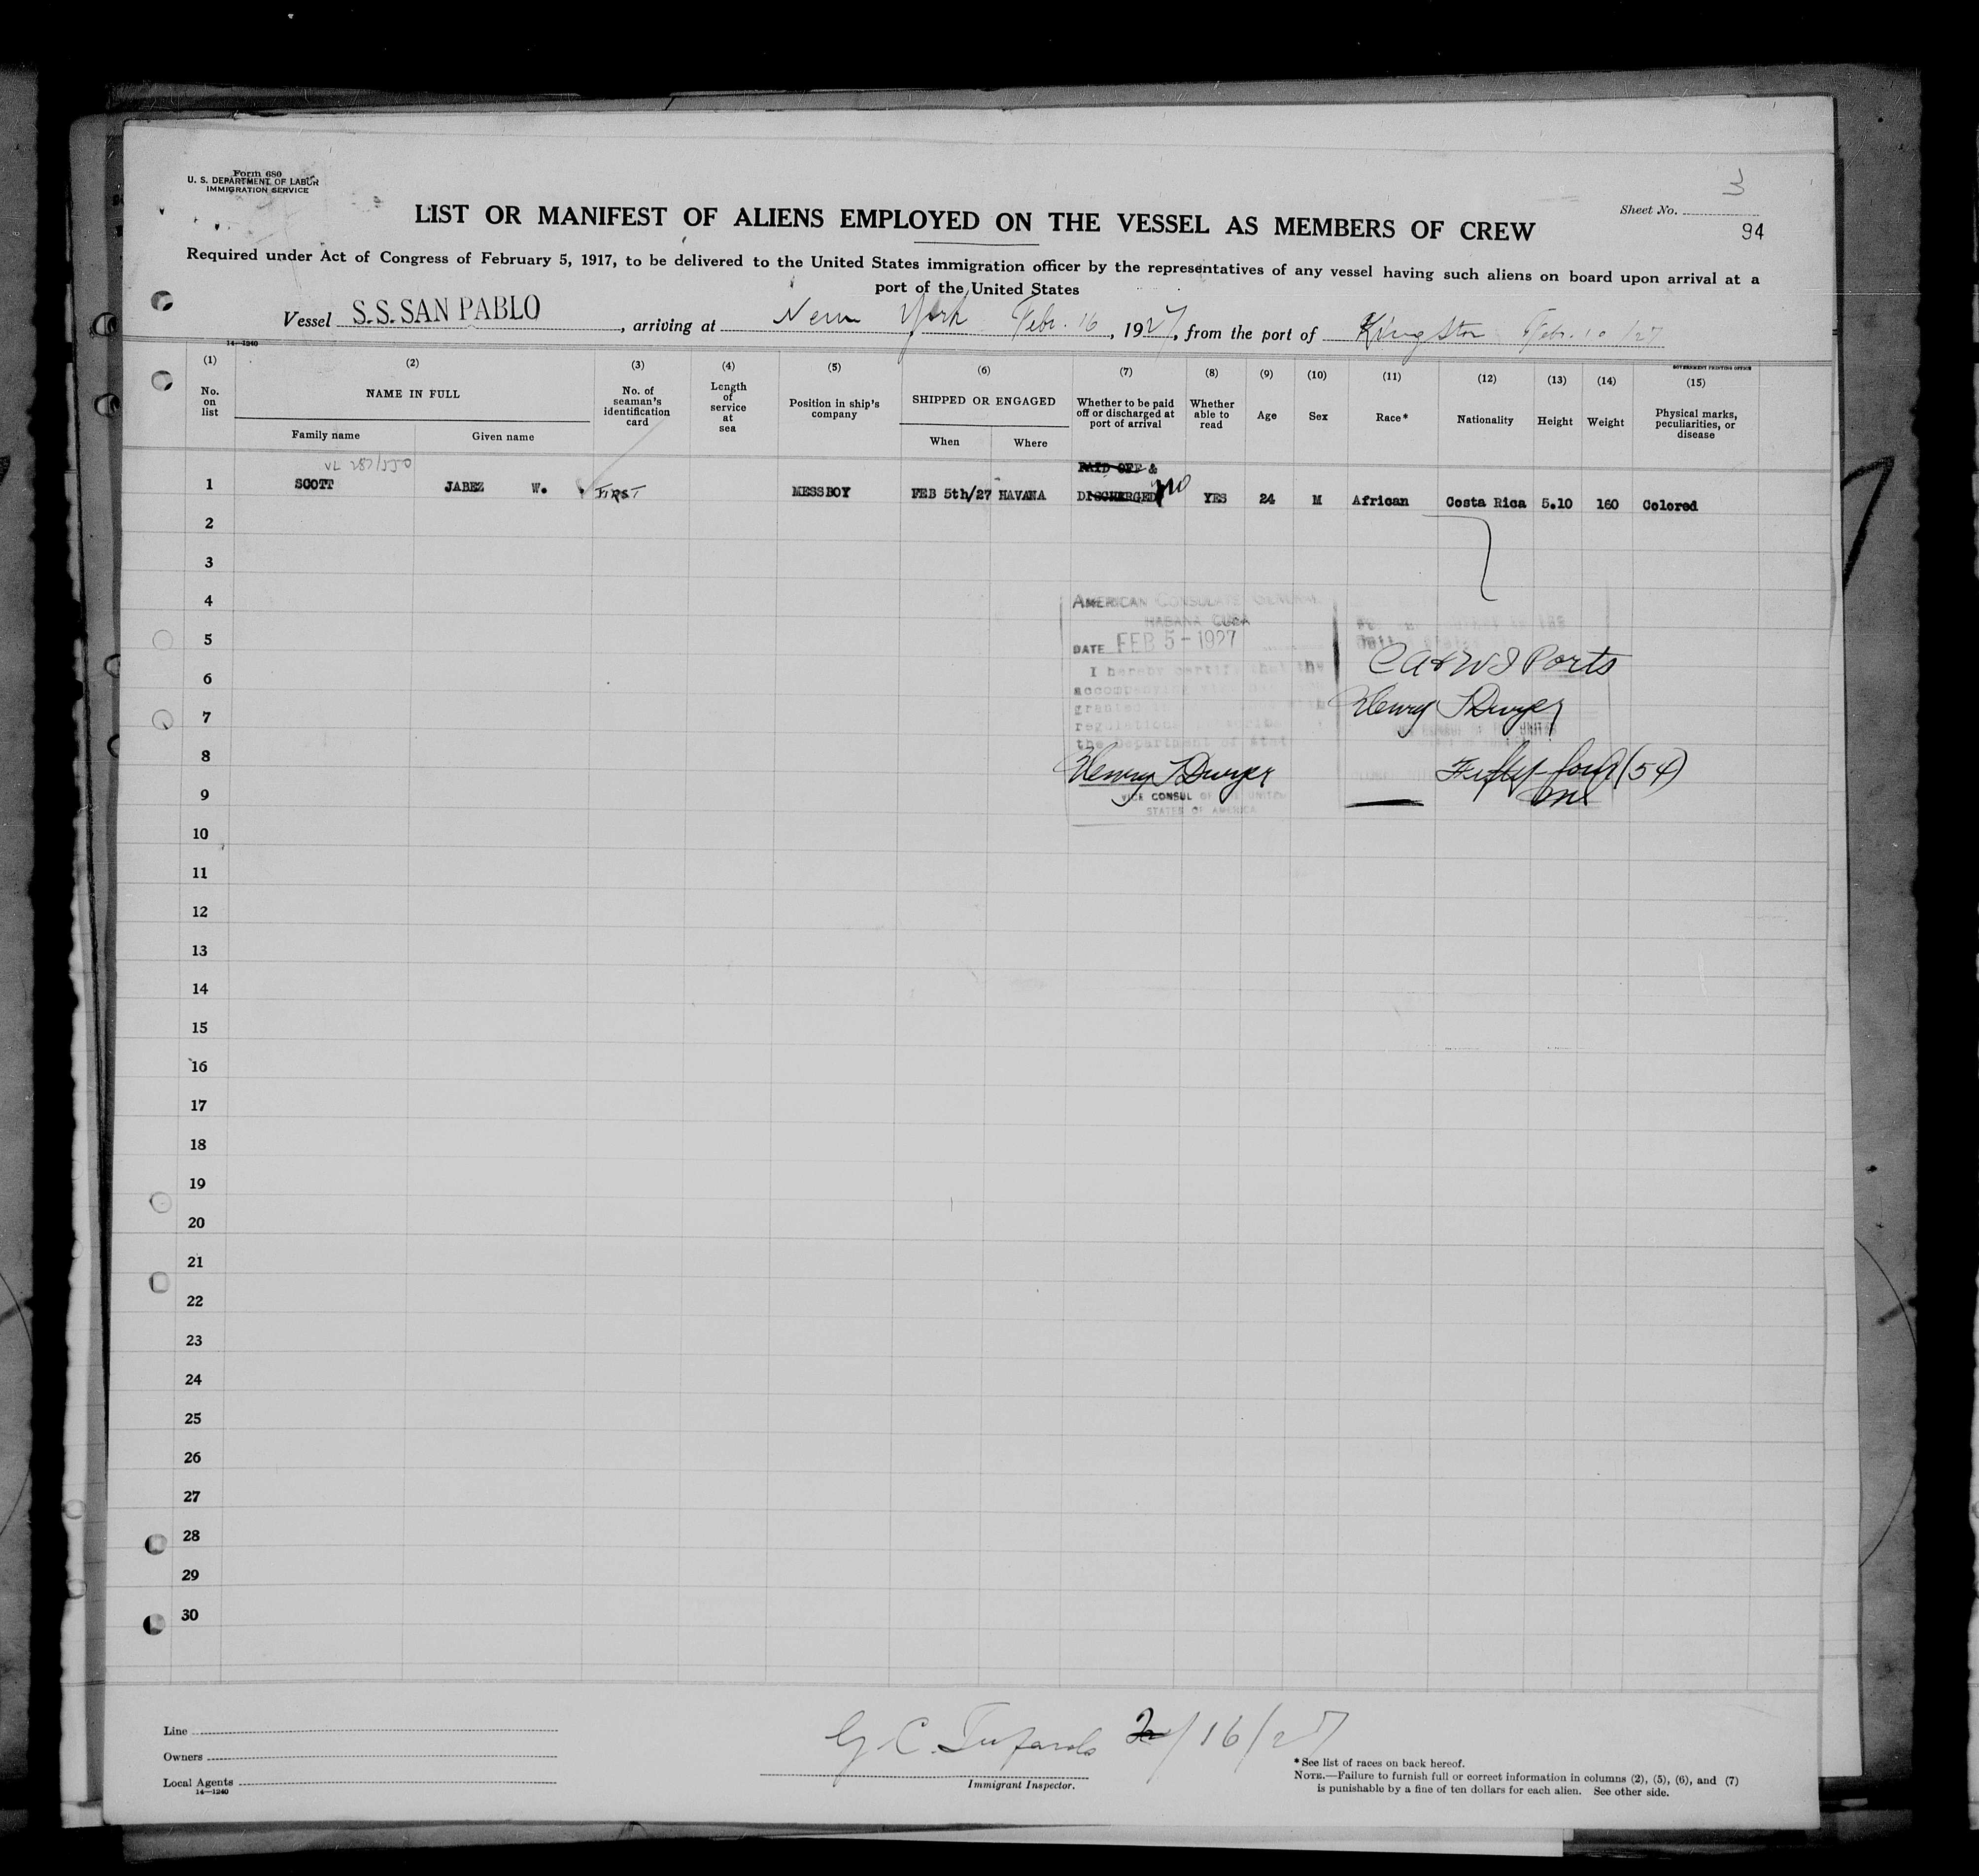 Form 680
U. S. DEPARTMENT OF LABOR
IMMIGRATION SERVICE
3
Sheet No.
94
LIST OR MANIFEST OF ALIENS EMPLOYED ON THE VESSEL AS MEMBERS OF CREW
Required under Act of Congress of February 5, 1917, to be delivered to the United States immigration officer by the representatives of any vessel having such aliens on board upon arrival at a
port of the United States
Vessel S.S. SAN PABLO, arriving at New York Febr. 16, 1927, from the port of Kingston Febr. 10/27
14—1240
GOVERNMENT PRINTING OFFICE
(1) (2) (3) (4) (5) (6) (7) (8) (9) (10) (11) (12) (13) (14) (15)
No. on list NAME IN FULL No. of seaman's identification card Length of service at sea Position in ship's company SHIPPED OR ENGAGED Whether to be paid off or discharged at port of arrival Whether able to read Age Sex Race* Nationality Height Weight Physical marks, peculiarities, or disease
Family name Given name When Where
VL 287/550
PAID OFF &
1 SCOTT JABEZ W. FIRST MESSBOY FEB 5th/27 HAVANA DISCHARGED no YES 24 M African Costa Rica 5.10 160 Colored
2
3
4
AMERICAN CONSULATE GENERAL
HABANA CUBA
5
DATE FEB 5-1927
CA & WI Ports
6
I hereby certify that the
accompanying
7
granted
regulations
the Department of State
Henry T Dwyer
8
Henry T Dwyer
Fifty-four (54)
VICE CONSUL OF THE UNITED
STATES OF AMERICA
9
10
11
12
13
14
15
16
17
18
19
20
21
22
23
24
25
26
27
28
29
30
Line
Owners
Local Agents
14—1240
G. C. 2/16/27
Immigrant Inspector.
*See list of races on back hereof.
NOTE.—Failure to furnish full or correct information in columns (2), (5), (6), and (7)
is punishable by a fine of ten dollars for each alien. See other side.